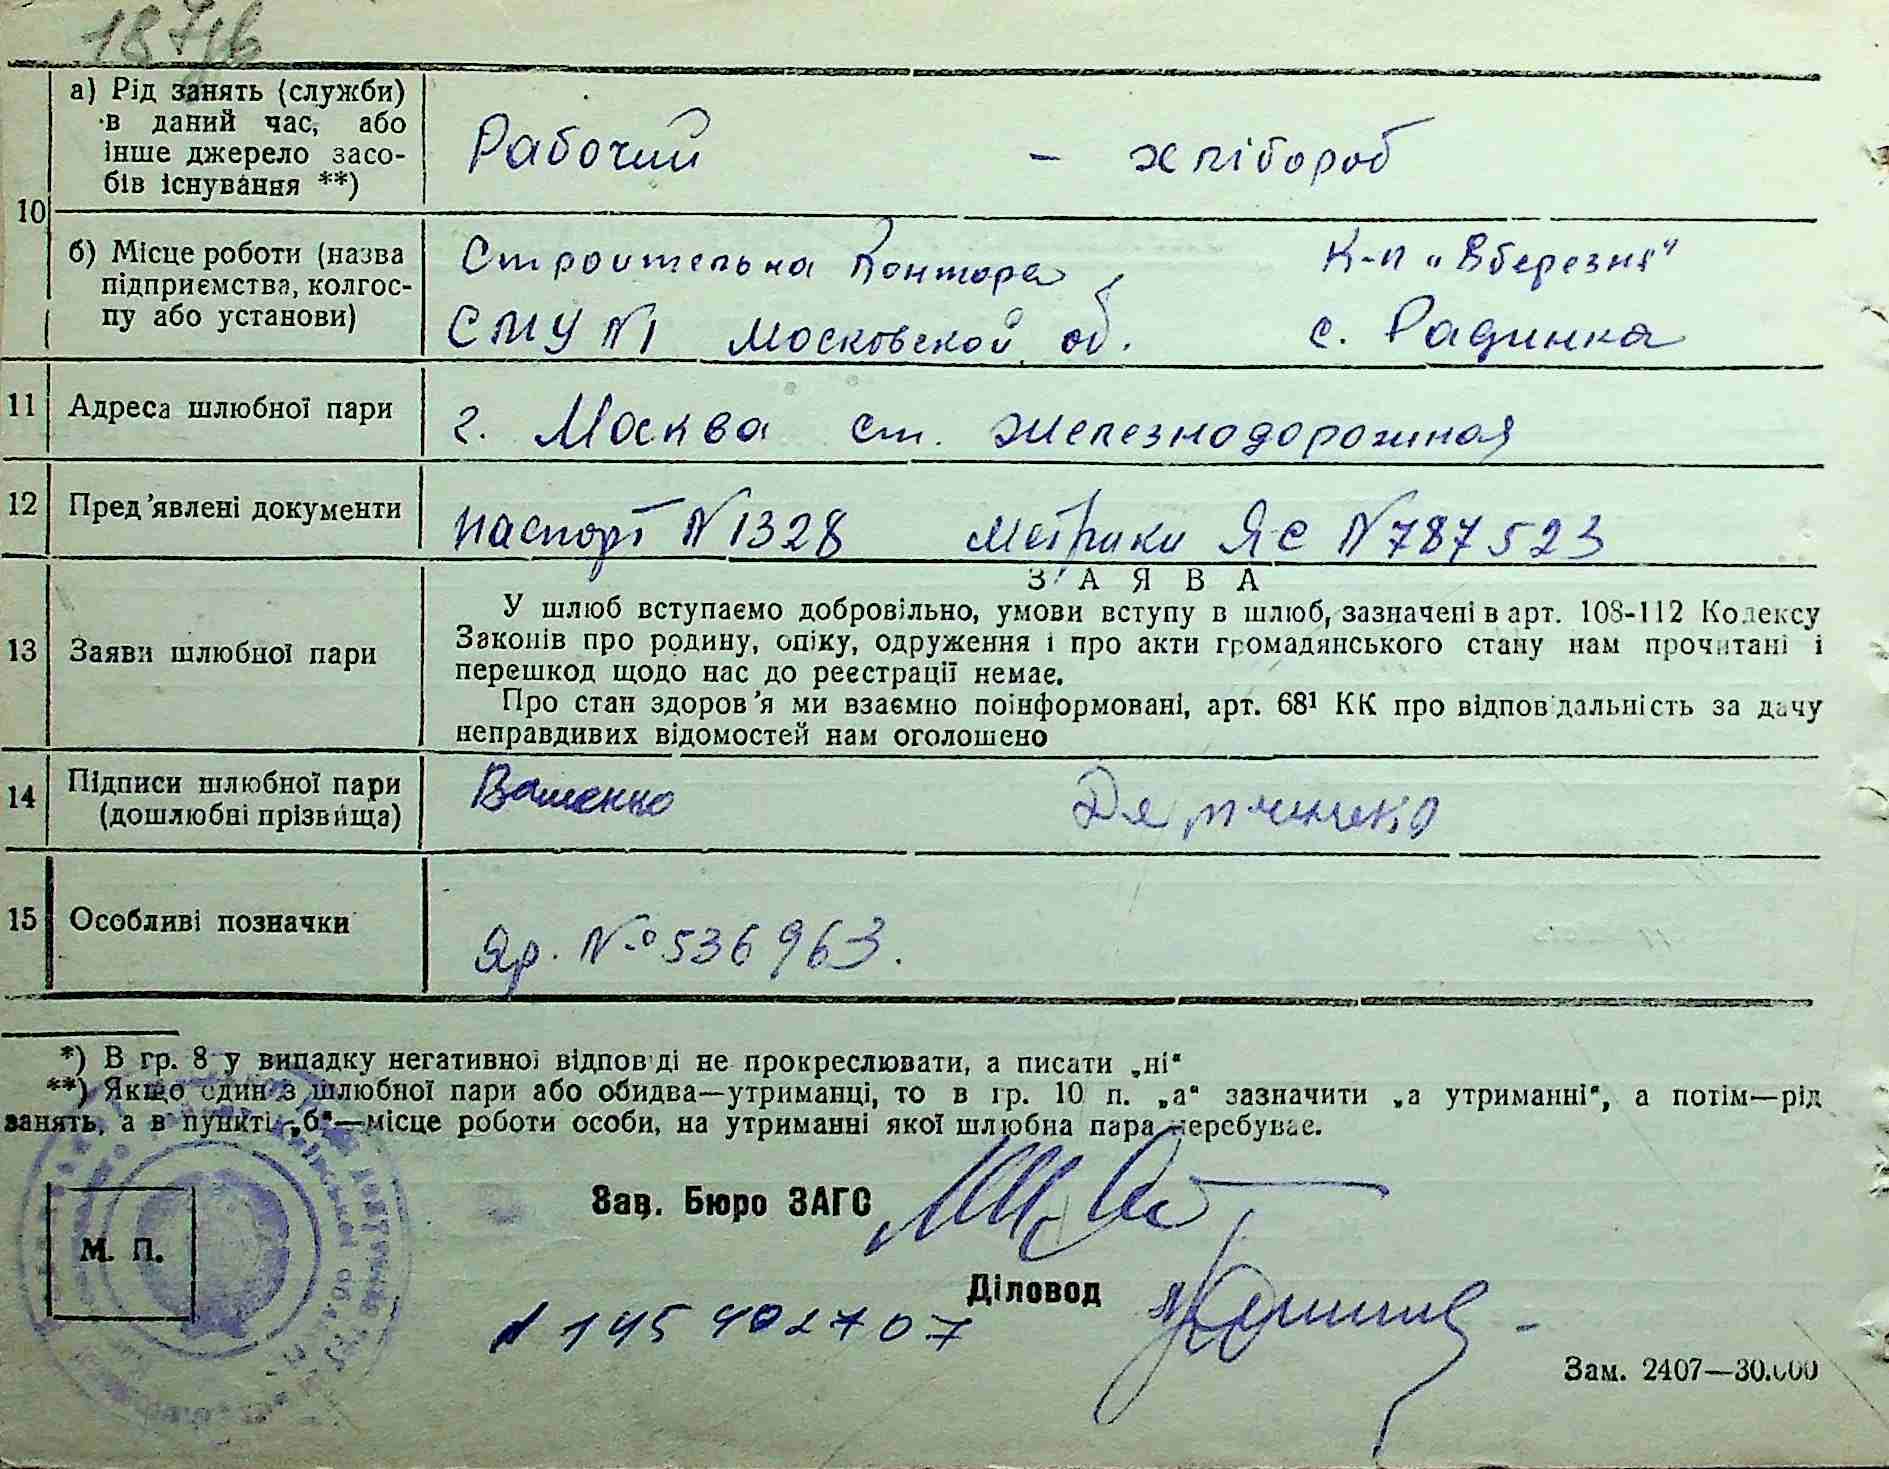 187/в
а) Рід занять (служби)
в даний час, або
інше джерело засо-
бів існування **)
Рабочий - хлібороб
10
б) Місце роботи (назва
підприємства, колгос-
пу або установи)
Строительна Контора, К-п „8 березня"
СМУ №1 Московской об. с. Радинка
11 Адреса шлюбної пари г. Москва ст. Железнодорожная
12 Пред'явлені документи паспорт №1328 метрики ЯС №787523
13 Заяви шлюбної пари
ЗАЯВА
У шлюб вступаємо добровільно, умови вступу в шлюб, зазначені в арт. 108-112 Кодексу
Законів про родину, опіку, одруження і про акти громадянського стану нам прочитані і
перешкод щодо нас до реєстрації немає.
Про стан здоров'я ми взаємно поінформовані, арт. 68¹ КК про відповідальність за дачу
неправдивих відомостей нам оголошено
14 Підписи шлюбної пари
(дошлюбні прізвища)
Ващенко
15 Особливі позначки Яр. № 536963.
*) В гр. 8 у випадку негативної відповіді не прокреслювати, а писати „ні"
**) Якщо один з шлюбної пари або обидва—утриманці, то в гр. 10 п. „а" зазначити „а утриманні", а потім—рід
занять, а в пункті „б"—місце роботи особи, на утриманні якої шлюбна пара перебуває.
Зав. Бюро ЗАГС
М. П.
Діловод
145402707
Зам. 2407—30.000